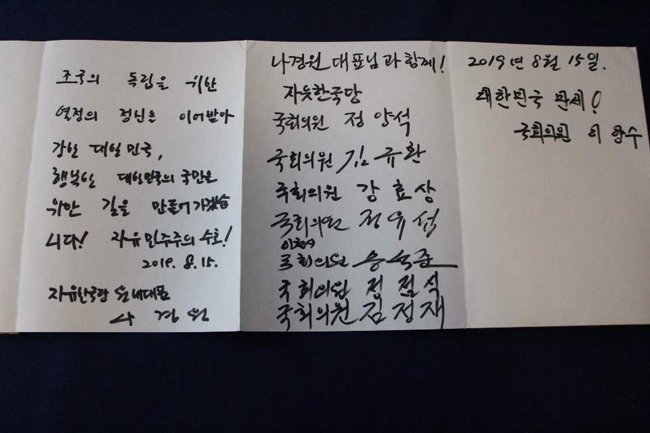 조국의 독립을 위한
열정의 정신을 이어받아
강한 대한민국,
행복한 대한민국의 국민을
위한 길을 만들어가겠습
니다! 자유민주주의 수호!
2019. 8. 15.
자유한국당 원내대표
나경원
나경원 대표님과 함께!
자유한국당
국회의원 정양석
국회의원 김규환
국회의원 강효상
국회의원 정유섭
국회의원 송석준
국회의원 정점식
국회의원 김정재
2019년 8월 15일.
대한민국 만세!
국회의원 이만수